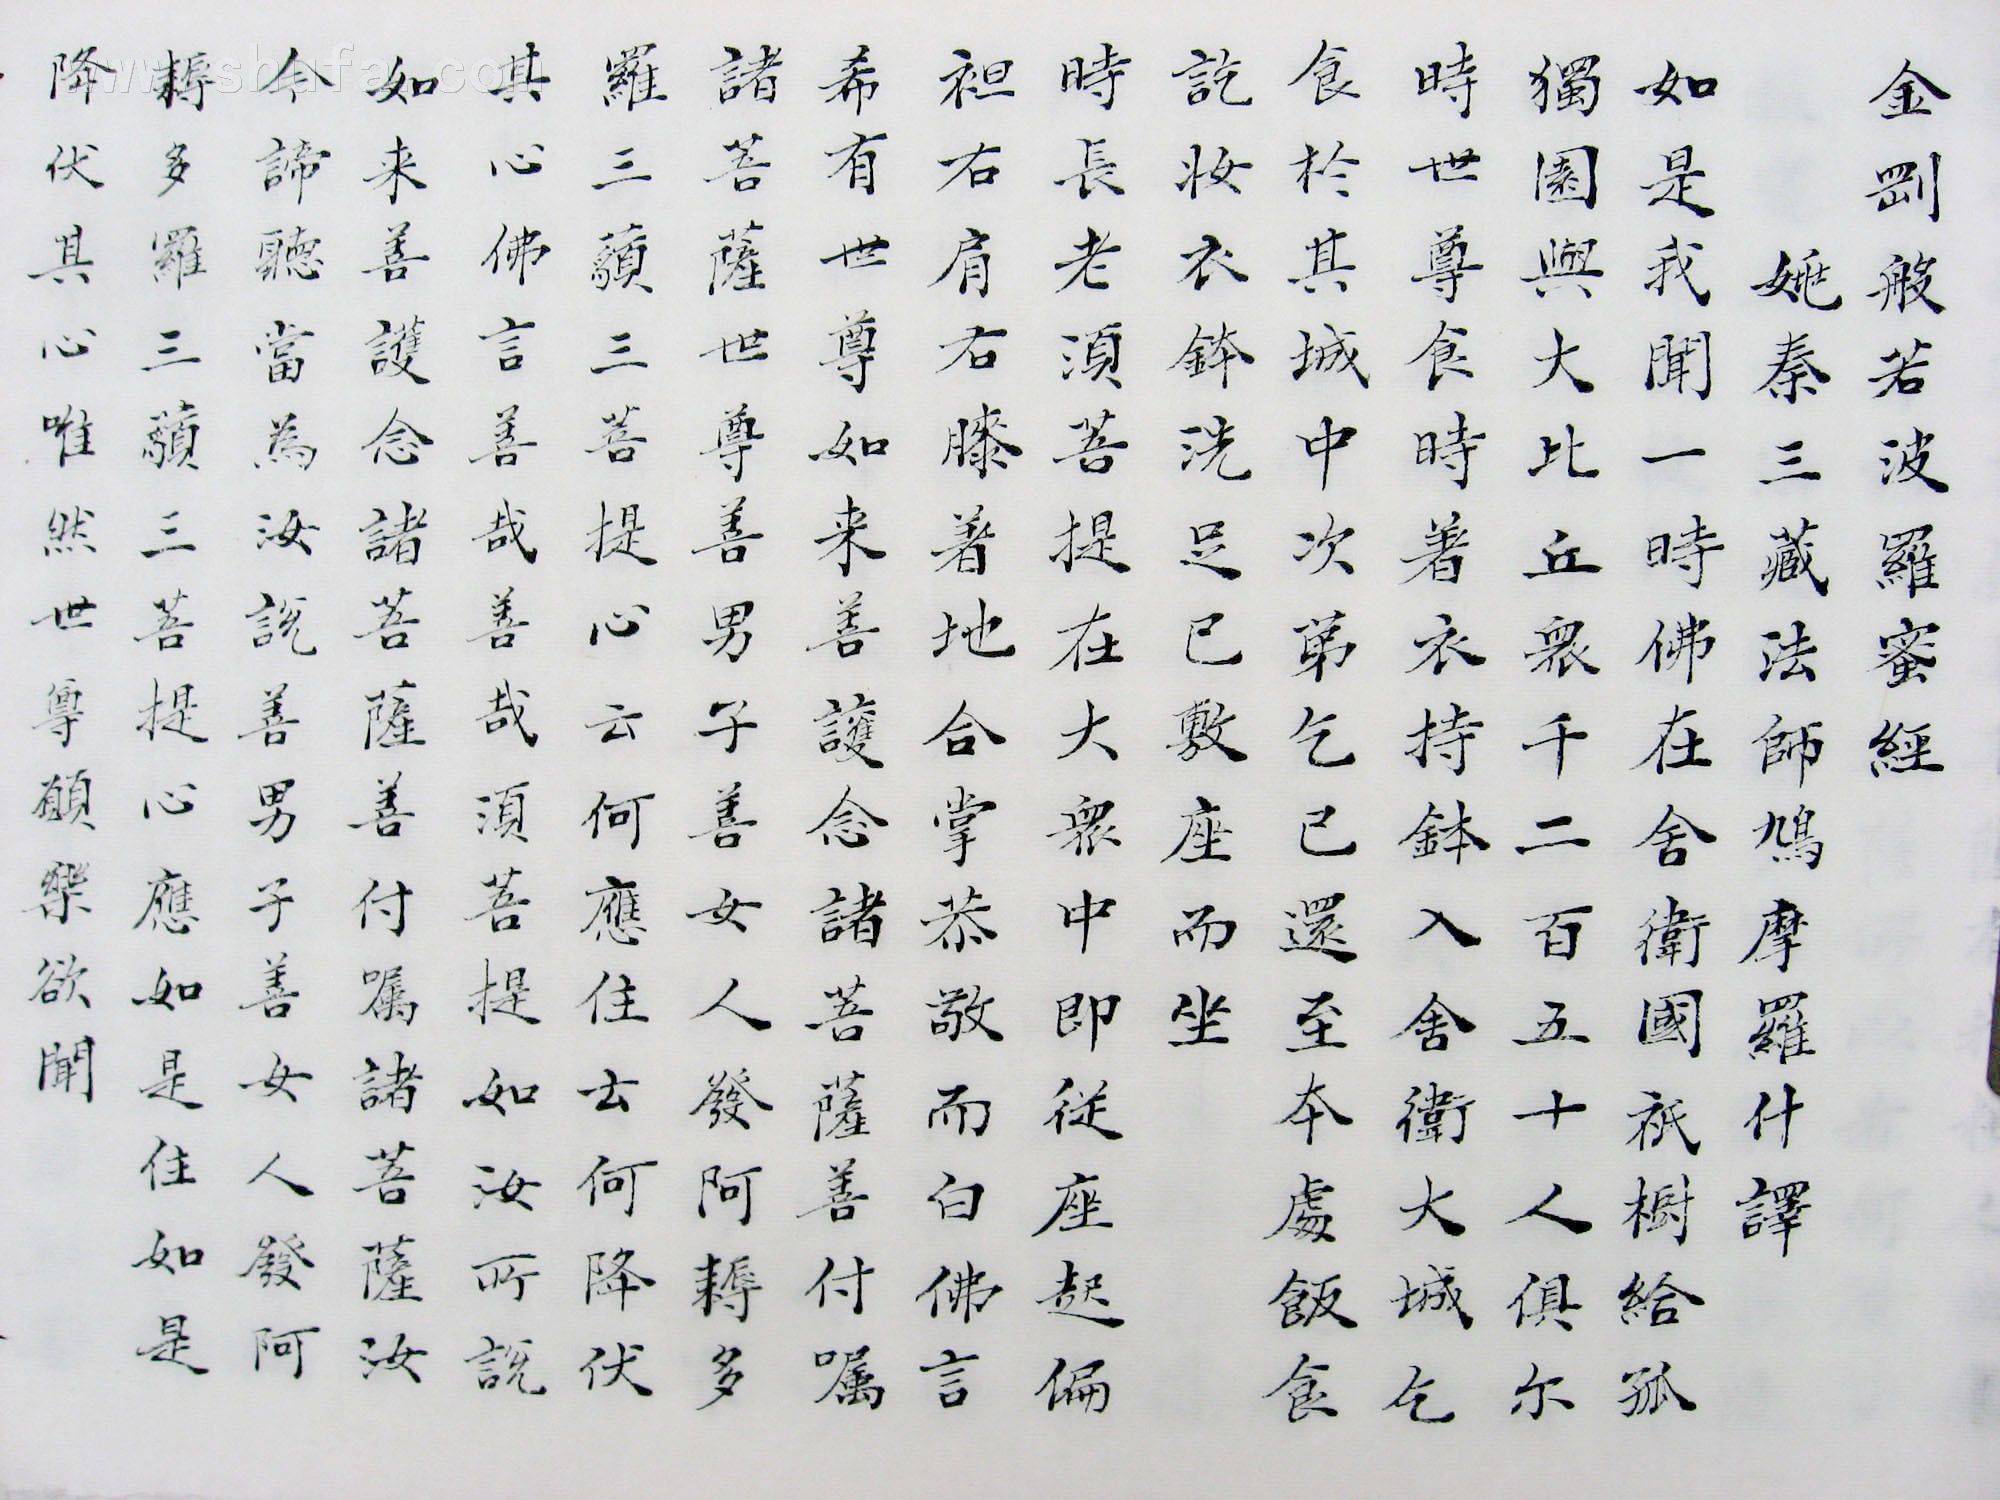 金剛般若波羅蜜經
姚秦三藏法師鳩摩羅什譯
如是我聞一時佛在舍衛國祇樹給孤
獨園與大比丘眾千二百五十人俱尔
時世尊食時著衣持鉢入舍衛大城乞
食於其城中次第乞已還至本處飯食
訖妝衣鉢洗足已敷座而坐
時長老須菩提在大眾中即從座起偏
袒右肩右膝著地合掌恭敬而白佛言
希有世尊如来善護念諸菩薩善付嘱
諸菩薩世尊善男子善女人發阿耨多
羅三藐三菩提心云何應住云何降伏
其心佛言善哉善哉須菩提如汝所說
如来善護念諸菩薩善付嘱諸菩薩汝
今諦聽當為汝說善男子善女人發阿
耨多羅三藐三菩提心應如是住如是
降伏其心唯然世尊願樂欲聞
www.shufa.com